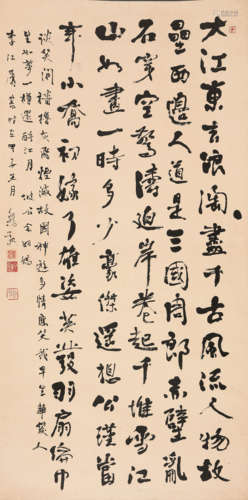 大江東去浪淘盡千古風流人物故
壘西邊人道是三國周郎赤壁亂
石穿空驚濤迫岸卷起千堆雪江
山如畫一時多少豪傑遥想公瑾當
年小喬初嫁了雄姿英發羽扇綸巾
談笑間檣櫓灰飛煙滅故國神遊多情應笑我早生華髮人
生如夢一樽還酹江月 坡公念奴嬌
李江 甲子 月